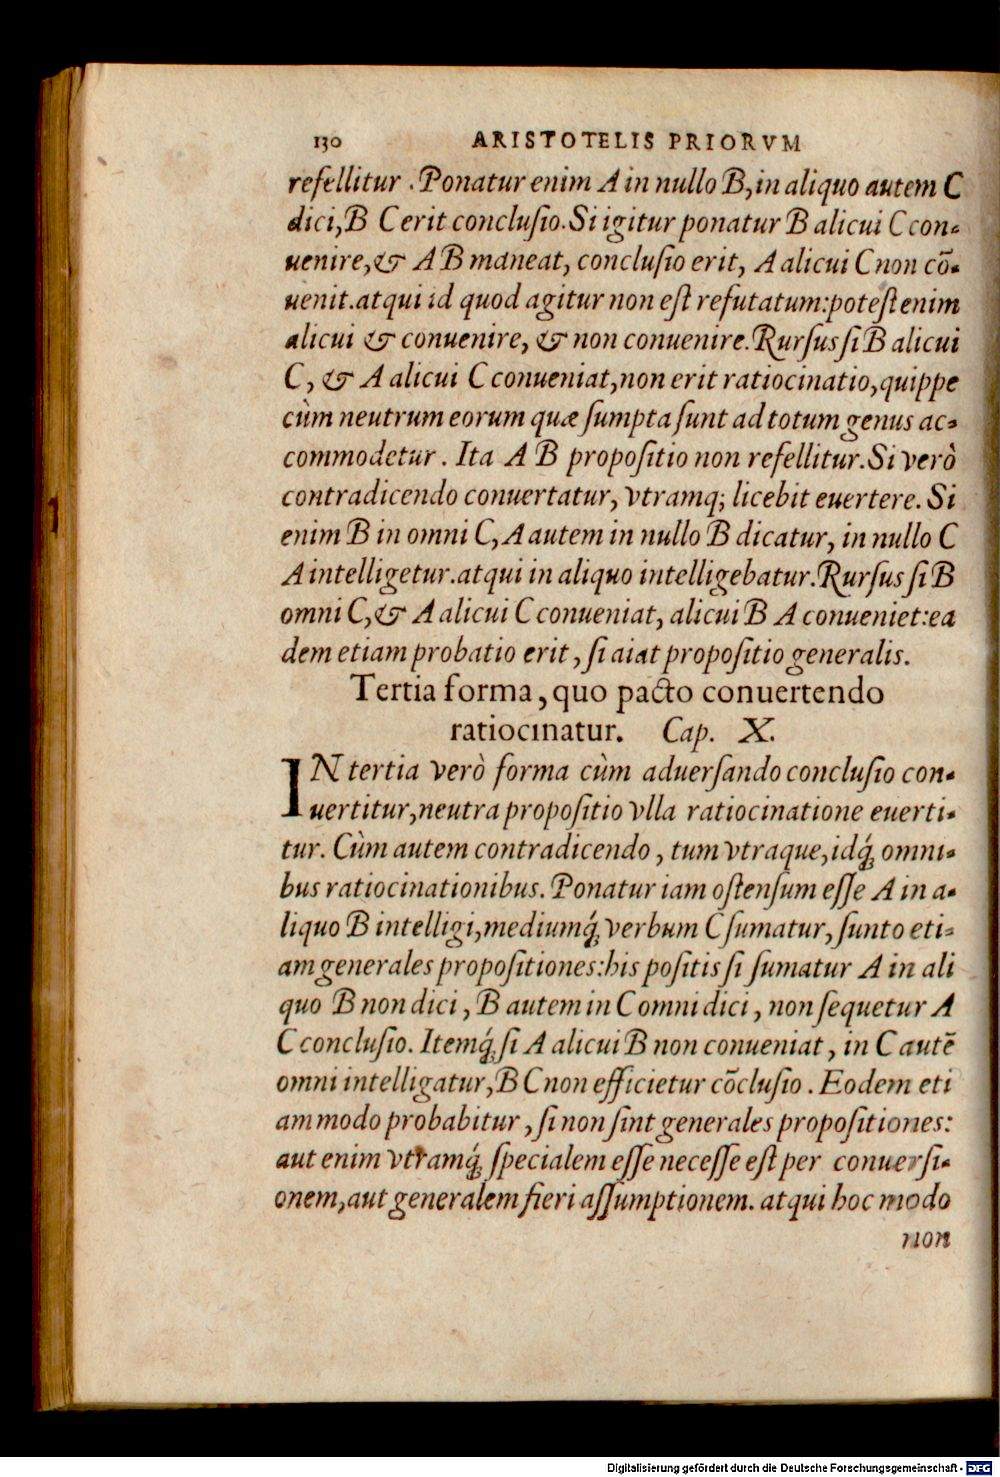 130 ARISTOTELIS PRIORVM
refellitur. Ponatur enim A in nullo B, in aliquo autem C
dici, B C erit conclusio. Si igitur ponatur B alicui C con-
uenire, & A B maneat, conclusio erit, A alicui C non cõ-
uenit. atqui id quod agitur non est refutatum: potest enim
alicui & conuenire, & non conuenire. Rursus si B alicui
C, & A alicui C conueniat, non erit ratiocinatio, quippe
cùm neutrum eorum quæ sumpta sunt ad totum genus ac-
commodetur. Ita A B propositio non refellitur. Si verò
contradicendo conuertatur, vtramq; licebit euertere. Si
enim B in omni C, A autem in nullo B dicatur, in nullo C
A intelligetur. atqui in aliquo intelligebatur. Rursus si B
omni C, & A alicui C conueniat, alicui B A conueniet: ea
dem etiam probatio erit, si aiat propositio generalis.
Tertia forma, quo pacto conuertendo
ratiocinatur. Cap. X.
IN tertia verò forma cùm aduersando conclusio con-
uertitur, neutra propositio vlla ratiocinatione euerti-
tur. Cùm autem contradicendo, tum vtraque, idq́; omni-
bus ratiocinationibus. Ponatur iam ostensum esse A in a-
liquo B intelligi, mediumq́; verbum C sumatur, sunto eti-
am generales propositiones: his positis si sumatur A in ali
quo B non dici, B autem in C omni dici, non sequetur A
C conclusio. Itemq́; si A alicui B non conueniat, in C autẽ
omni intelligatur, B C non efficietur cõclusio. Eodem eti
am modo probabitur, si non sint generales propositiones:
aut enim vtramq́; specialem esse necesse est per conuersi-
onem, aut generalem fieri assumptionem. atqui hoc modo
non
Digitalisierung gefördert durch die Deutsche Forschungsgemeinschaft - DFG